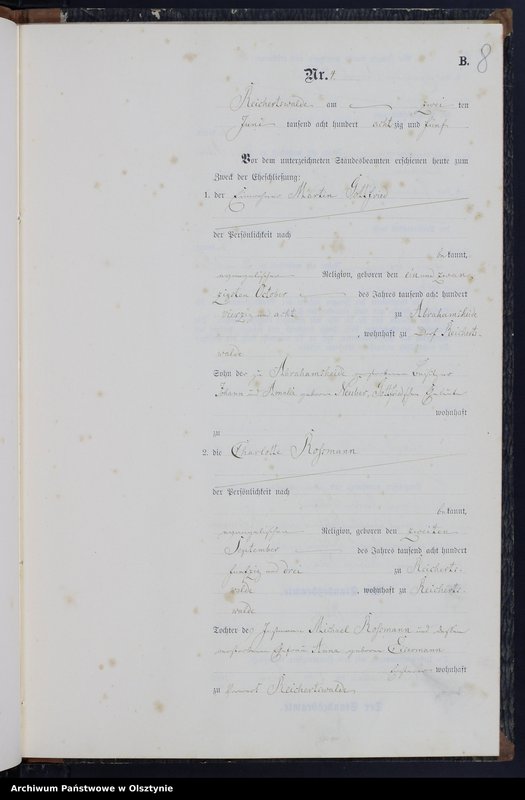 B. 8
Nr. 4.
Reichertswalde am zwei ten
Juni tausend acht hundert acht zig und fünf
Vor dem unterzeichneten Standesbeamten erschienen heute zum
Zweck der Eheschließung:
1. der Einwohner Martin Gottfried
der Persönlichkeit nach
bekannt,
evangelischer Religion, geboren den ein und zwan
zigsten October des Jahres tausend acht hundert
vierzig und acht zu Abrahamsheide
, wohnhaft zu Dorf Reicherts-
walde
Sohn der zu Abrahamsheide verstorbenen
Johann und Amalie geborene Neuber, Gottfriedschen Eheleute
wohnhaft
zu
2. die Charlotte Rossmann
der Persönlichkeit nach
bekannt,
evangelischer Religion, geboren den zweiten
September des Jahres tausend acht hundert
fünfzig und drei zu Reicherts-
walde , wohnhaft zu Reicherts-
walde
Tochter des Michael Rossmann und dessen
verstorbenen Ehefrau Anna geborene Eisermann
wohnhaft
zu Vorwerk Reichertswalde
Archiwum Państwowe w Olsztynie